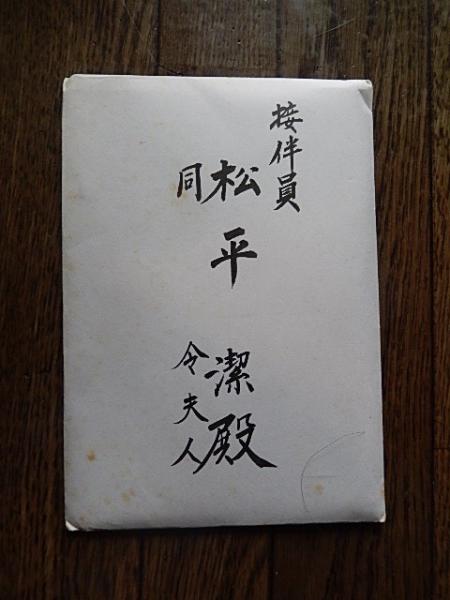 接伴員
松平 潔殿
同 令夫人